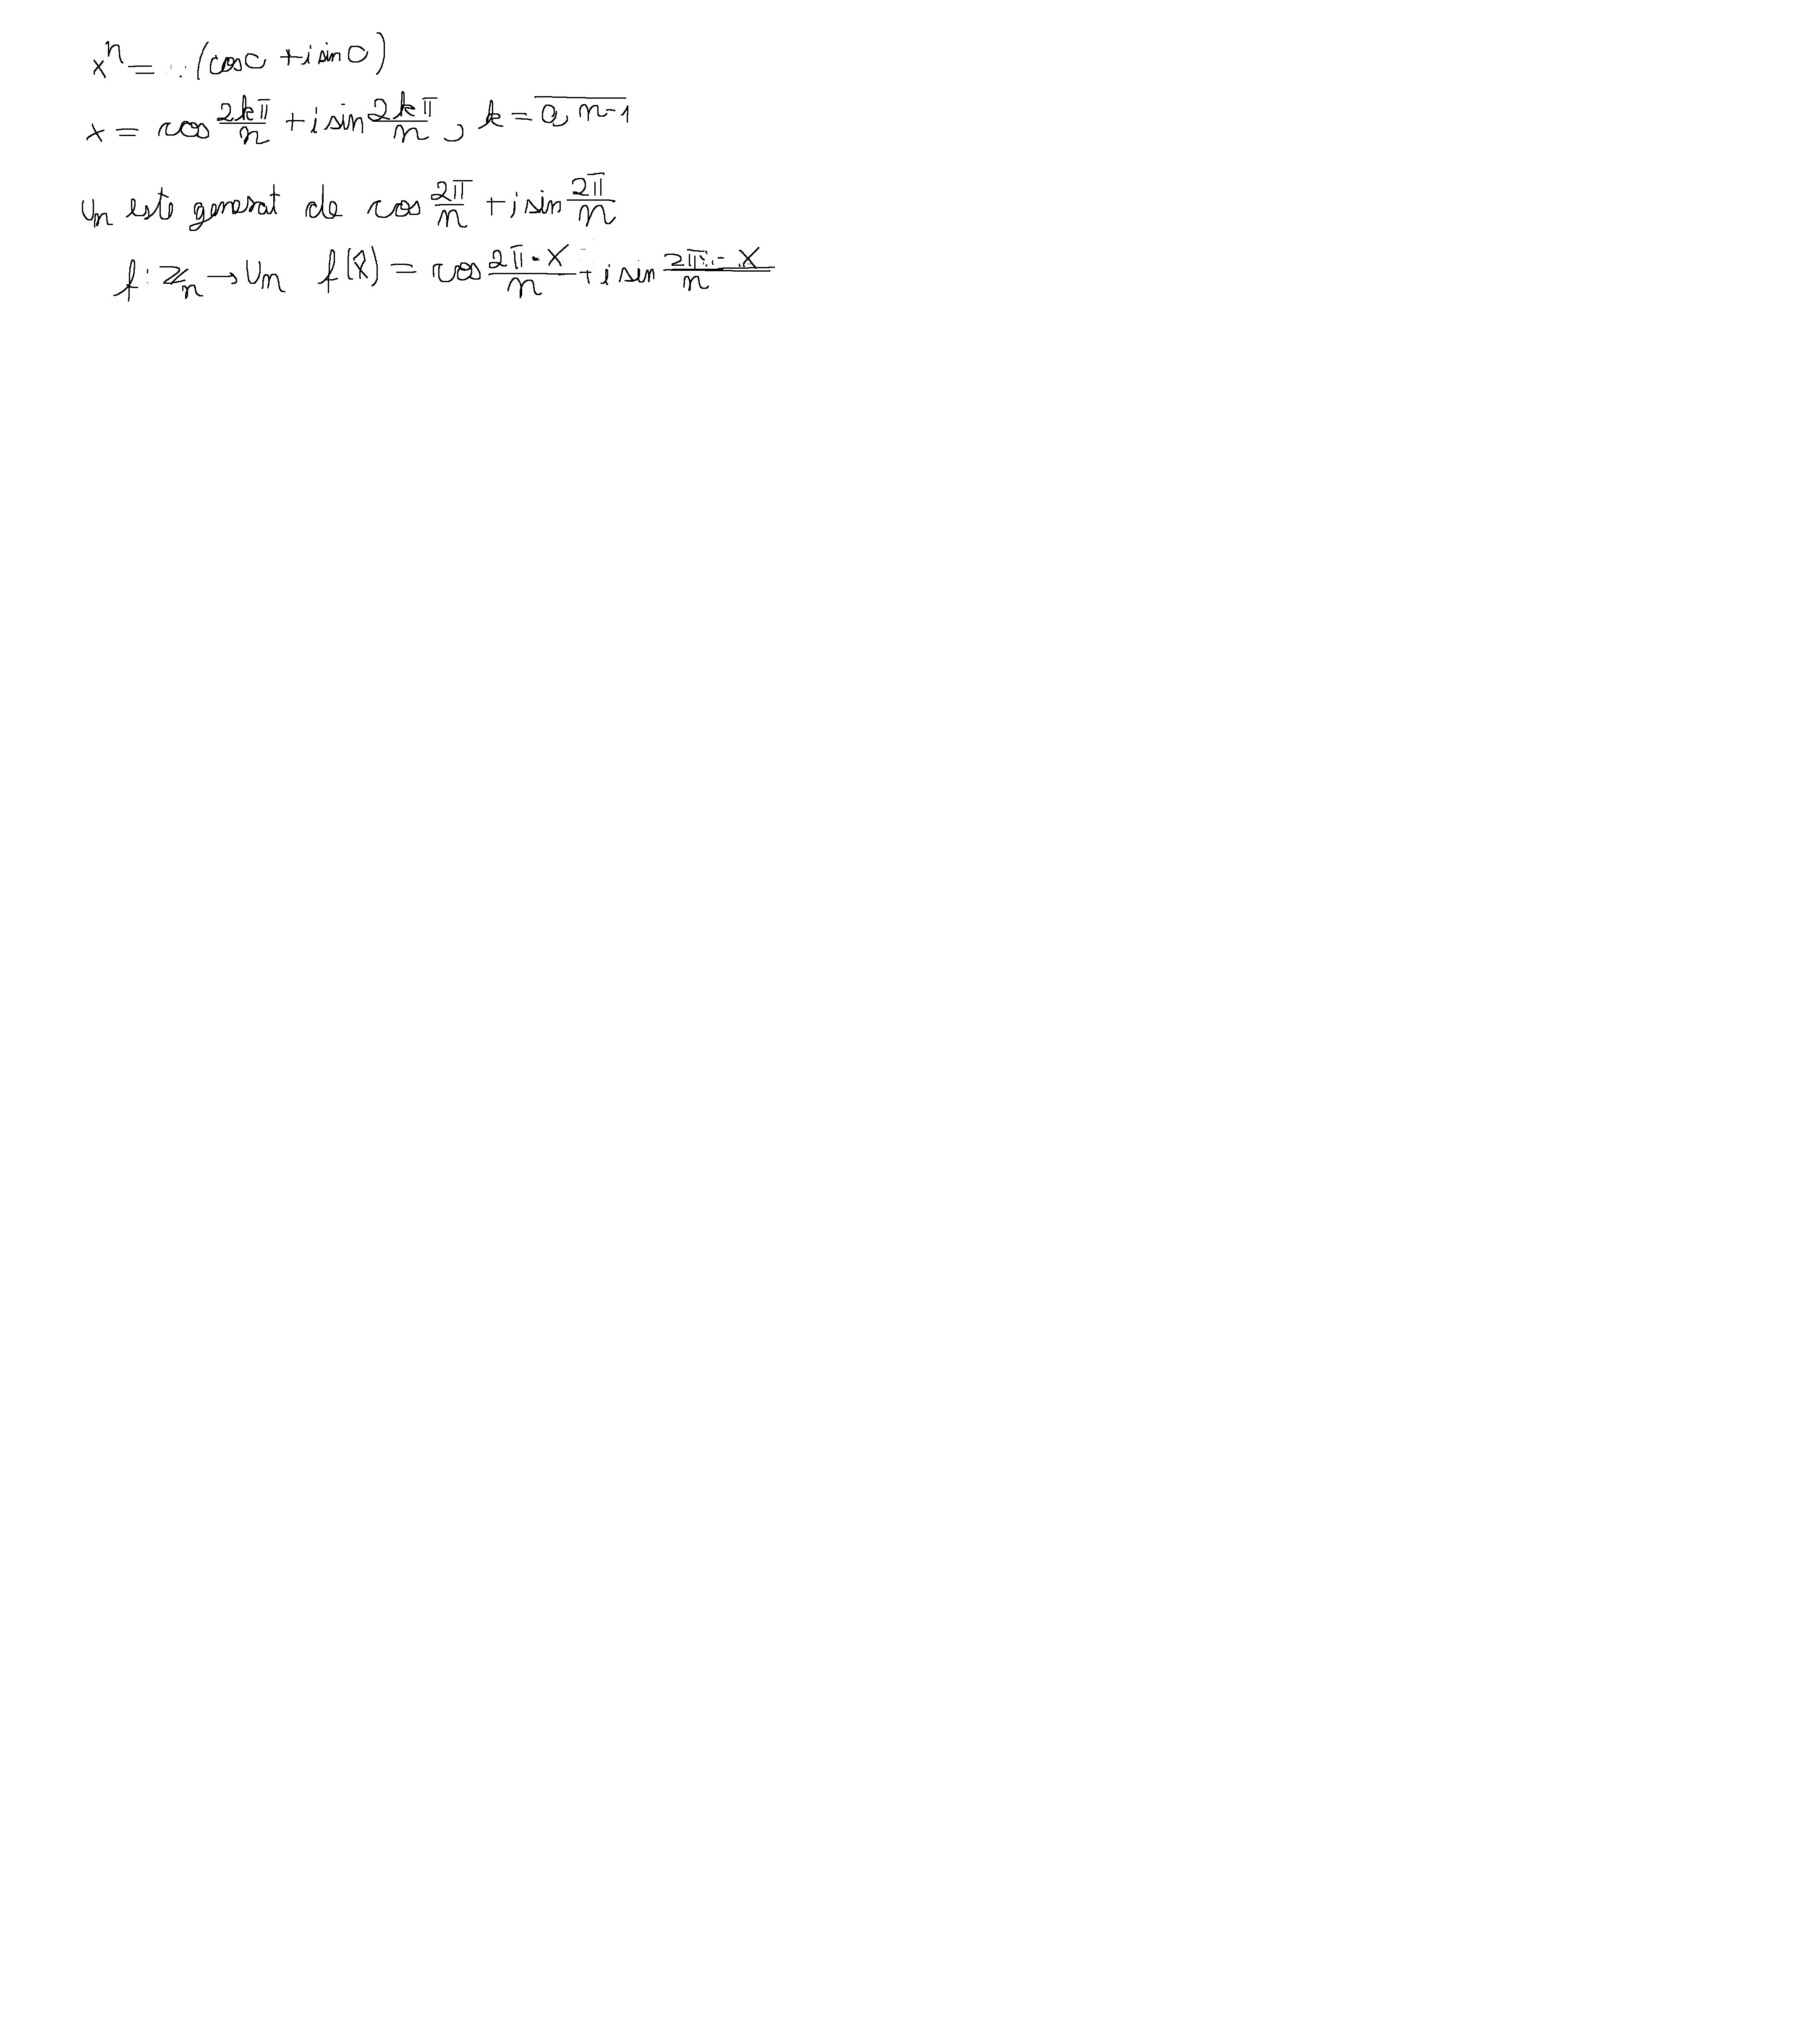 xⁿ = (cos 0 + i sin 0)
x = cos 2kπ/n + i sin 2kπ/n, k = 0, n-1
Un este generat de cos 2π/n + i sin 2π/n
f: ℤn → Un f(x̂) = cos 2π·x/n + i sin 2π·x/n